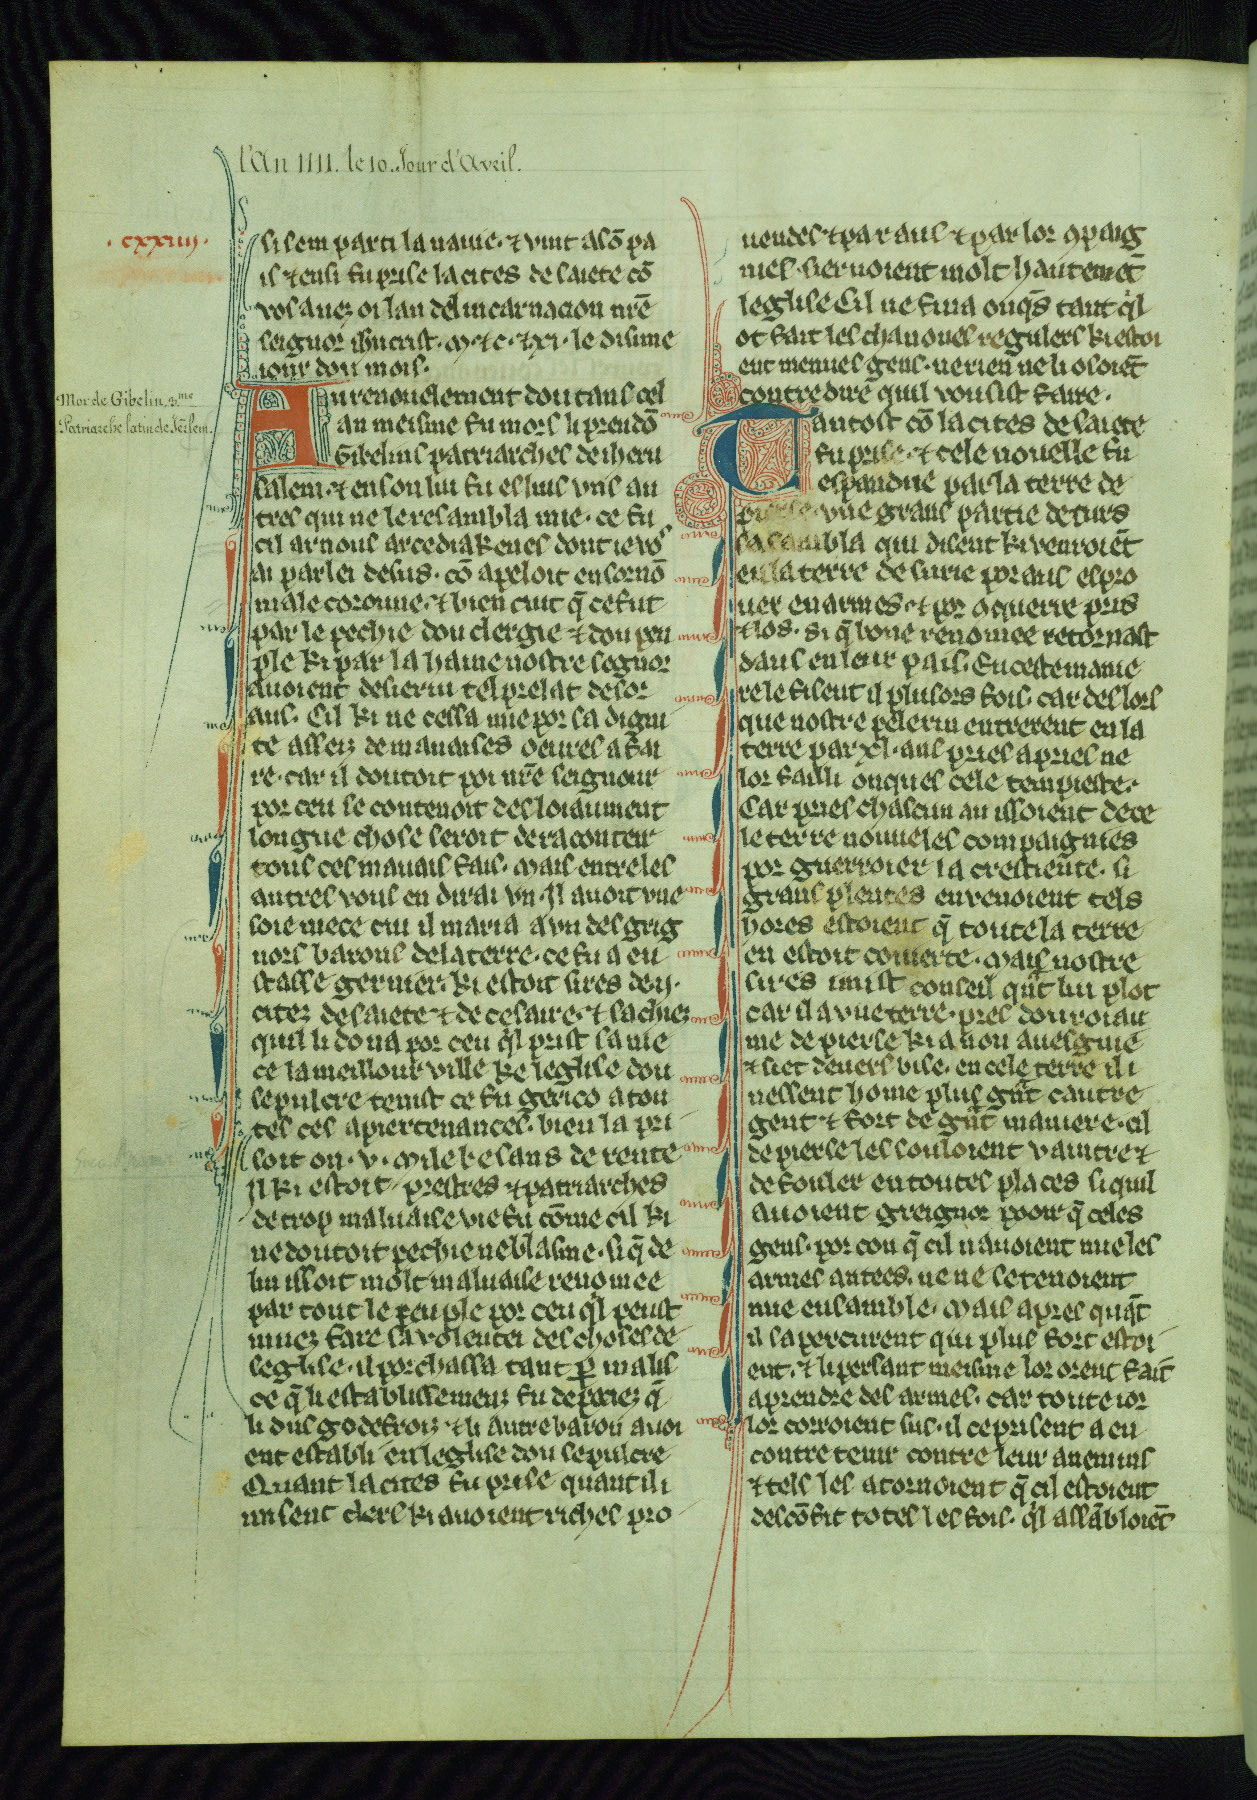 l'An 1111. le 10. Jour d'Avril.
· cxxiiij ·
si sem parti la navie · ⁊ vint a sō pa
is ⁊ ensi fu prise la cites de saiete cō
vos avez oi lan del incarnacion nrē
seignor ihucrist · m · ⁊ c · ⁊ xi · le disime
iour dou mois ·
Mor de Gibelin, 2.me
Patriarche latin de Jerlem.
Au renouelement dou tans cel
an meisme fu mors li preudō
Gibelins patriarches de iheru
salem · ⁊ en son liu fu eslius uns au
tres qui ne le resambla mie · ce fu
cil arnous arcediakenes dont ie vo⁹
ai parlei desus · cō apeloit en sornō
male coronne · ⁊ bien cuit q̄ ce fut
par le pechie dou clergie ⁊ dou peu
ple ki par la haine nostre segnor
avoient deservi tel prelat desor
aus · Cil ki ne cessa mie por sa digni
te asseiz de mauaises oeures a fai
re · car il doutoit poi nrē seignour
por ceu se contenoit desloiaument
longue chose seroit de raconteir
tous ces mauais fais · mais entre les
autres vous en dirai un · Il avoit une
soie niece cui il maria a un des grig
nors barons de la terre · ce fu a eu
stasse gernier · ki estoit sires de ij ·
citez de saiete ⁊ de cesaire · ⁊ sachiez
quil li dona por ceu q̄l prist sa nie
ce la meillour ville ke leglise dou
sepulcre tenist ce fu gerico a tou
tes ces apiertenances · bien la pri
soit on · v · mile besans de rente
Il ki estoit prestres ⁊ patriarches
de trop maluaise vie fu cōme cil ki
ne doutoit pechie ne blasme · si q̄ de
lui issoit molt maluaise renomee
par tout le peuple por ceu q̄l peust
miuez fare sa volentei des choses de
leglise · il porchassa tant p̄ malis
ce q̄ li establissemenz fu depeciez q̄
li dus godefroiz ⁊ li autre baron avoi
ent establi en leglise dou sepulcre
Quant la cites fu prise quant il i
misent clers ki avoient riches pro
uendes ⁊ par aus ⁊ par lor ꝯpaig
nies · servoient molt hautemēt
leglise Cil ne fina onq̄s tant q̄l
ot fait les chanones regulers ki estoi
ent menues gens · ne rien ne li osoiēt
contredire quil vousist faire ·
Tantost cō la cites de saiete
fu prise · ⁊ cele nouelle fu
espandue par la terre de
pierse · une grans partie de turs
sasambla qui disent ki venroiēt
en la terre de surie por aus espro
uer en armes · ⁊ por aquerre pris
⁊ los · si q̄ bone renomee retornast
daus en leur pais · En ceste manie
re le fisent il plusors fois · car des lors
que nostre pelerin entrerent en la
terre par xl · ans pries apries ne
lor failli onques cele tempieste ·
Car pries chascun an issoient de ce
le terre nouueles compaignies
por guerroier la crestiente · si
grans plentes en venoient tels
hores estoient q̄ toute la terre
en estoit couerte · mais nostre
sires i mist conseil qūt lui plot
car il a une terre · pres dou roiau
me de pierse ki a non avesguie
⁊ siet devers bise · en cele terre il i
uessent home plus gūt cautre
gent ⁊ fort de gūt maniere · cil
de pierse les souloient vaintre ⁊
defouler en toutes places si quil
avoient greignor pooir q̄ celes
gens · por cou q̄ cil n avoient mie les
armes antees · ne ne se tenoient
mie ensamble · mais apres quāt
il sapercurent qui plus fort estoi
ent · ⁊ li persant meisme lor orent fait
aprendre des armes · car toute ior
lor corroient sus · il ce prisent a eu
contre tenir contre leur anemins
⁊ tels les atornoient q̄ cil estoient
descōfit totes les fois · q̄l assābloiēt